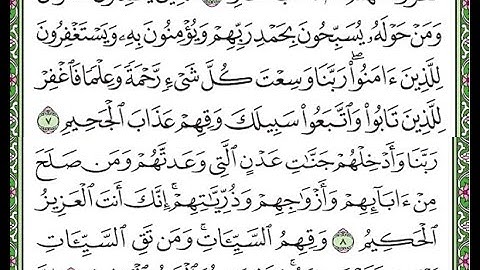 وَمَنْ حَوْلَهُۥ يُسَبِّحُونَ بِحَمْدِ رَبِّهِمْ وَيُؤْمِنُونَ بِهِۦ وَيَسْتَغْفِرُونَ
لِلَّذِينَ ءَامَنُوا۟ۖ رَبَّنَا وَسِعْتَ كُلَّ شَىْءٍ رَّحْمَةً وَعِلْمًا فَٱغْفِرْ
لِلَّذِينَ تَابُوا۟ وَٱتَّبَعُوا۟ سَبِيلَكَ وَقِهِمْ عَذَابَ ٱلْجَحِيمِ ٧
رَبَّنَا وَأَدْخِلْهُمْ جَنَّٰتِ عَدْنٍ ٱلَّتِى وَعَدتَّهُمْ وَمَن صَلَحَ
مِنْ ءَابَآئِهِمْ وَأَزْوَٰجِهِمْ وَذُرِّيَّٰتِهِمْۚ إِنَّكَ أَنتَ ٱلْعَزِيزُ
ٱلْحَكِيمُ ٨ وَقِهِمُ ٱلسَّيِّـَٔاتِۚ وَمَن تَقِ ٱلسَّيِّـَٔاتِ